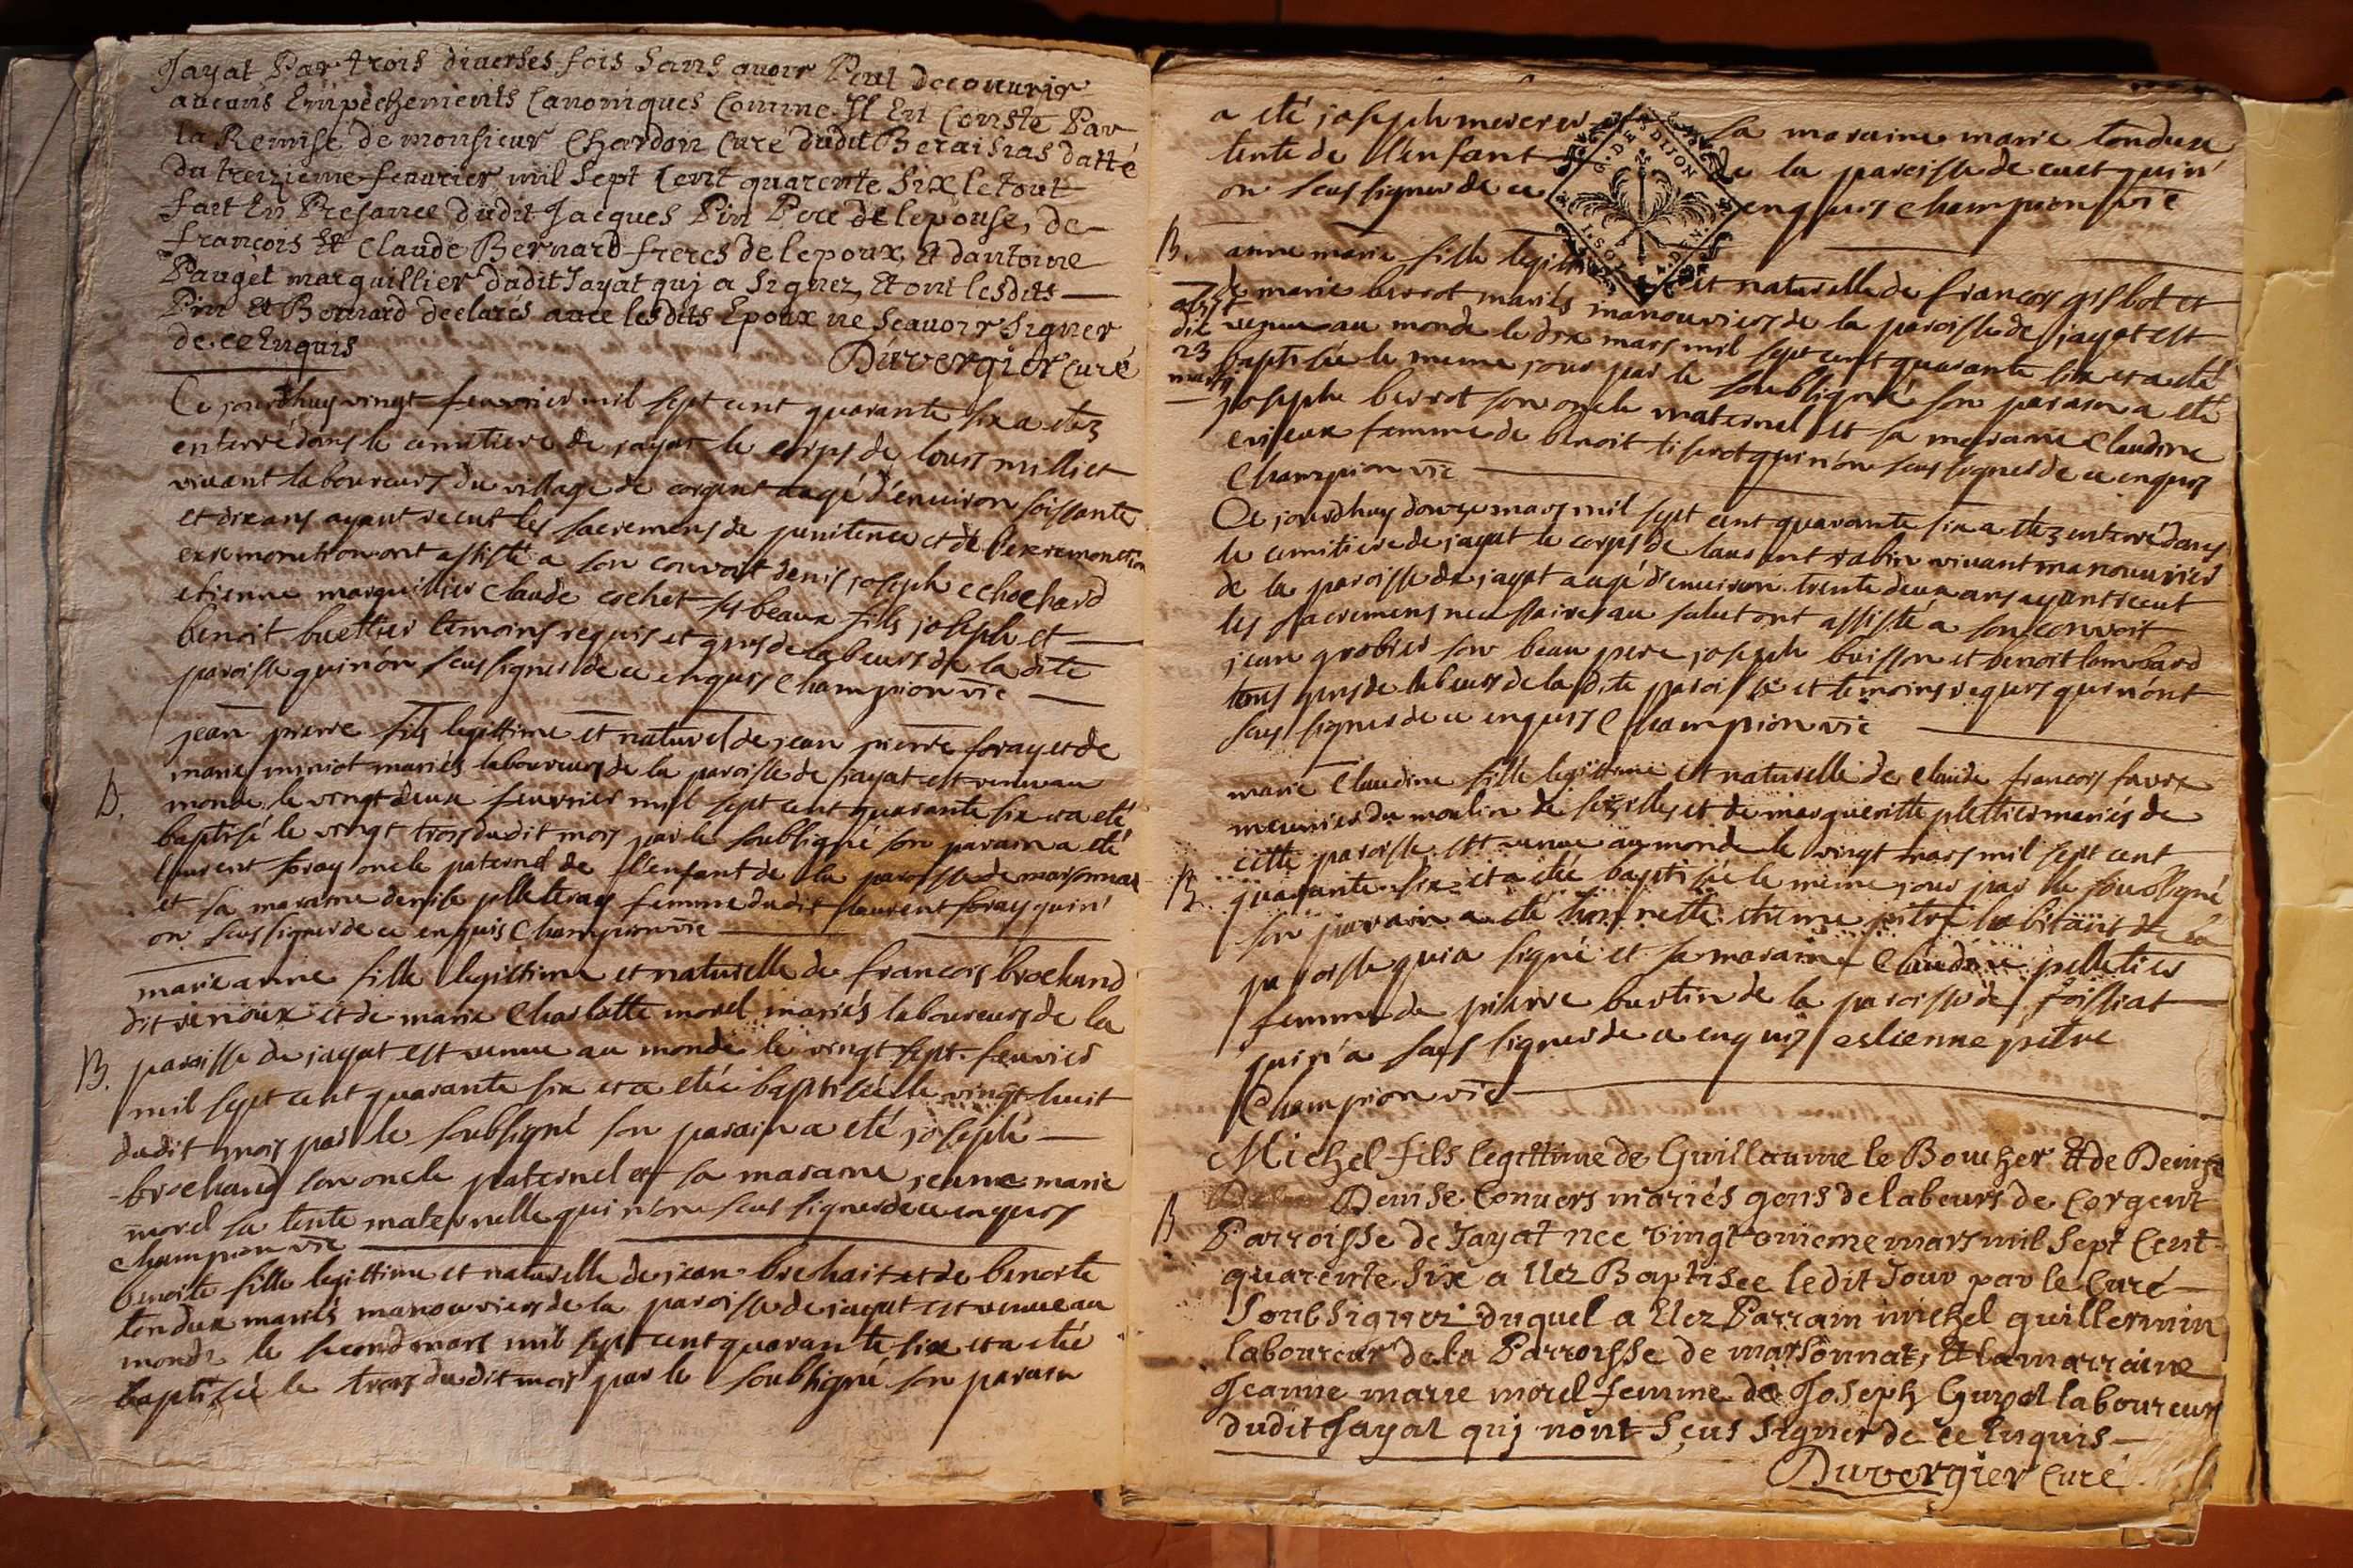 Jayat Par trois diverses fois Sans avoir Peut decouvrir
aucuns Empechements Canoniques Comme Il En Conste Par
la Remise de monsieur Chardon Curé dudit Beraisias datté
du treizieme fevrier mil Sept Cent quarente Six le tout
fait En Presance dudit Jacques Pin Pere de lepouse, de
françois Et Claude Bernard freres de lepoux, Et dantoine
Pauget marguillier dudit Jayat quj a Signez, Et ont lesdits
Pin Et Bernard declarés avec lesdits Epoux ne Sçavoir Signer
de ce Enquis
Duvergier Curé
Ce jourdhuy vingt feuvrier mil sept cent quarante six a etez
enterré dans le cimetiere de jayat le corps de louis milliet
vivant laboureurs du village de corgent aagé d'environ soissante
et dix ans ayant recut les sacremens de penitence et de l'exremonction
exremonction ont assisté a son convoit denis joseph echochard
etienne marguillier claude cochet ses beaux fils joseph et
benoit buettier temoins requis et gens de labeurs de la dite
paroisse qui n'on seus signer de ce enquis Champion vic
jean pierre fils legittime et naturel de jean pierre foray et de
marie miniot mariés laboureurs de la paroisse de jayat est venu au
B. monde le vingt deux feuvrier mil sept cent quarante six et a eté
baptisé le vingt trois dudit mois par le soubsigné son parain a eté
laurent foray oncle paternel de l'enfant de la paroisse de marsonnas
et sa maraine denise pelleteray femme dudit laurent foray qui n'
on seus signer de ce enquis Champion vic
marie anne fille legittime et naturelle de francois brochand
dit renoux et de marie Charlotte morel mariés laboureurs de la
B. paroisse de jayat est venue au monde le vingt sept feuvrier
mil sept cent quarante six et a etée baptisée le vingt huit
dudit mois par le soubsigné son parain a eté joseph
brochand son oncle paternel et sa maraine jeanne marie
morel sa tente maternelle qui n'on seus signer de ce enquis
Champion vic
benoite fille legittime et naturelle de jean brehait et de benoite
tondux mariés manouvriers de la paroisse de jayat est venue au
monde le second mars mil sept cent quarante six et a etée
baptisée le trois dudit mois par le soubsigné son parain
a eté joseph mererer sa maraine marie tondux
tente de l'enfant de la paroisse de cuet qui n'
on seus signer de ce enquis Champion vic
G. DE DIJON
B. anne marie fille legittime et naturelle de francois gislot et
de marie berrot mariés manouvriers de la paroisse de jayat est
venue au monde le dix mars mil sept cent quarante six et a eté
dit
23
mars
baptisée le meme jour par le soubsigné son parain a eté
joseph berrot son oncle maternel et sa maraine Claudine
femme de benoit tissot qui n'on seus signer de ce enquis
Champion vic
Ce jourdhuy douze mars mil sept cent quarante six a etez enterré dans
le cimitiere de jayat le corps de laurent rabin vivant manouvrier
de la paroisse de jayat aagé d'environ trente deux ans ayant recut
les sacremens necessaires au salut ont assisté a son convoit
jean grobier son beau pere joseph buisson et benoit lombard
tous gens de labeurs de la dite paroisse et temoins requis qui n'ont
seus signer de ce enquis Champion vic
marie Claudine fille legittime et naturelle de claude francois favre
meunier du moulin de sezille et de margueritte plettier mariés de
cette paroisse est venue au monde le vingt mars mil sept cent
B. quarante six et a etée baptisée le meme jour par le soubsigné
son parain a eté honnette etienne pitre habitant de la
paroisse qui a signé et sa maraine Claudine pelletier
femme de pierre burtin de la paroisse de foissiat
qui n'a seus signer de ce enquis estienne pitre
Champion vic
Michel fils legittime de Guillaume le Boucher Et de Denise
Denise Convers mariés gens de labeurs de Corgent
B Parroisse de Jayat nee vingt onieme mars mil Sept Cent
quarente Six a Etez Baptisee ledit Jour par le Curé
Soubsignez duquel a Etez Parrain michel guillermin
laboureur de la Parroisse de marsonnat, Et la marraine
Jeanne marie morel femme de Joseph Guyot laboureur
dudit Jayat quj nont Sçus Signer de ce Enquis
Duvergier Curé